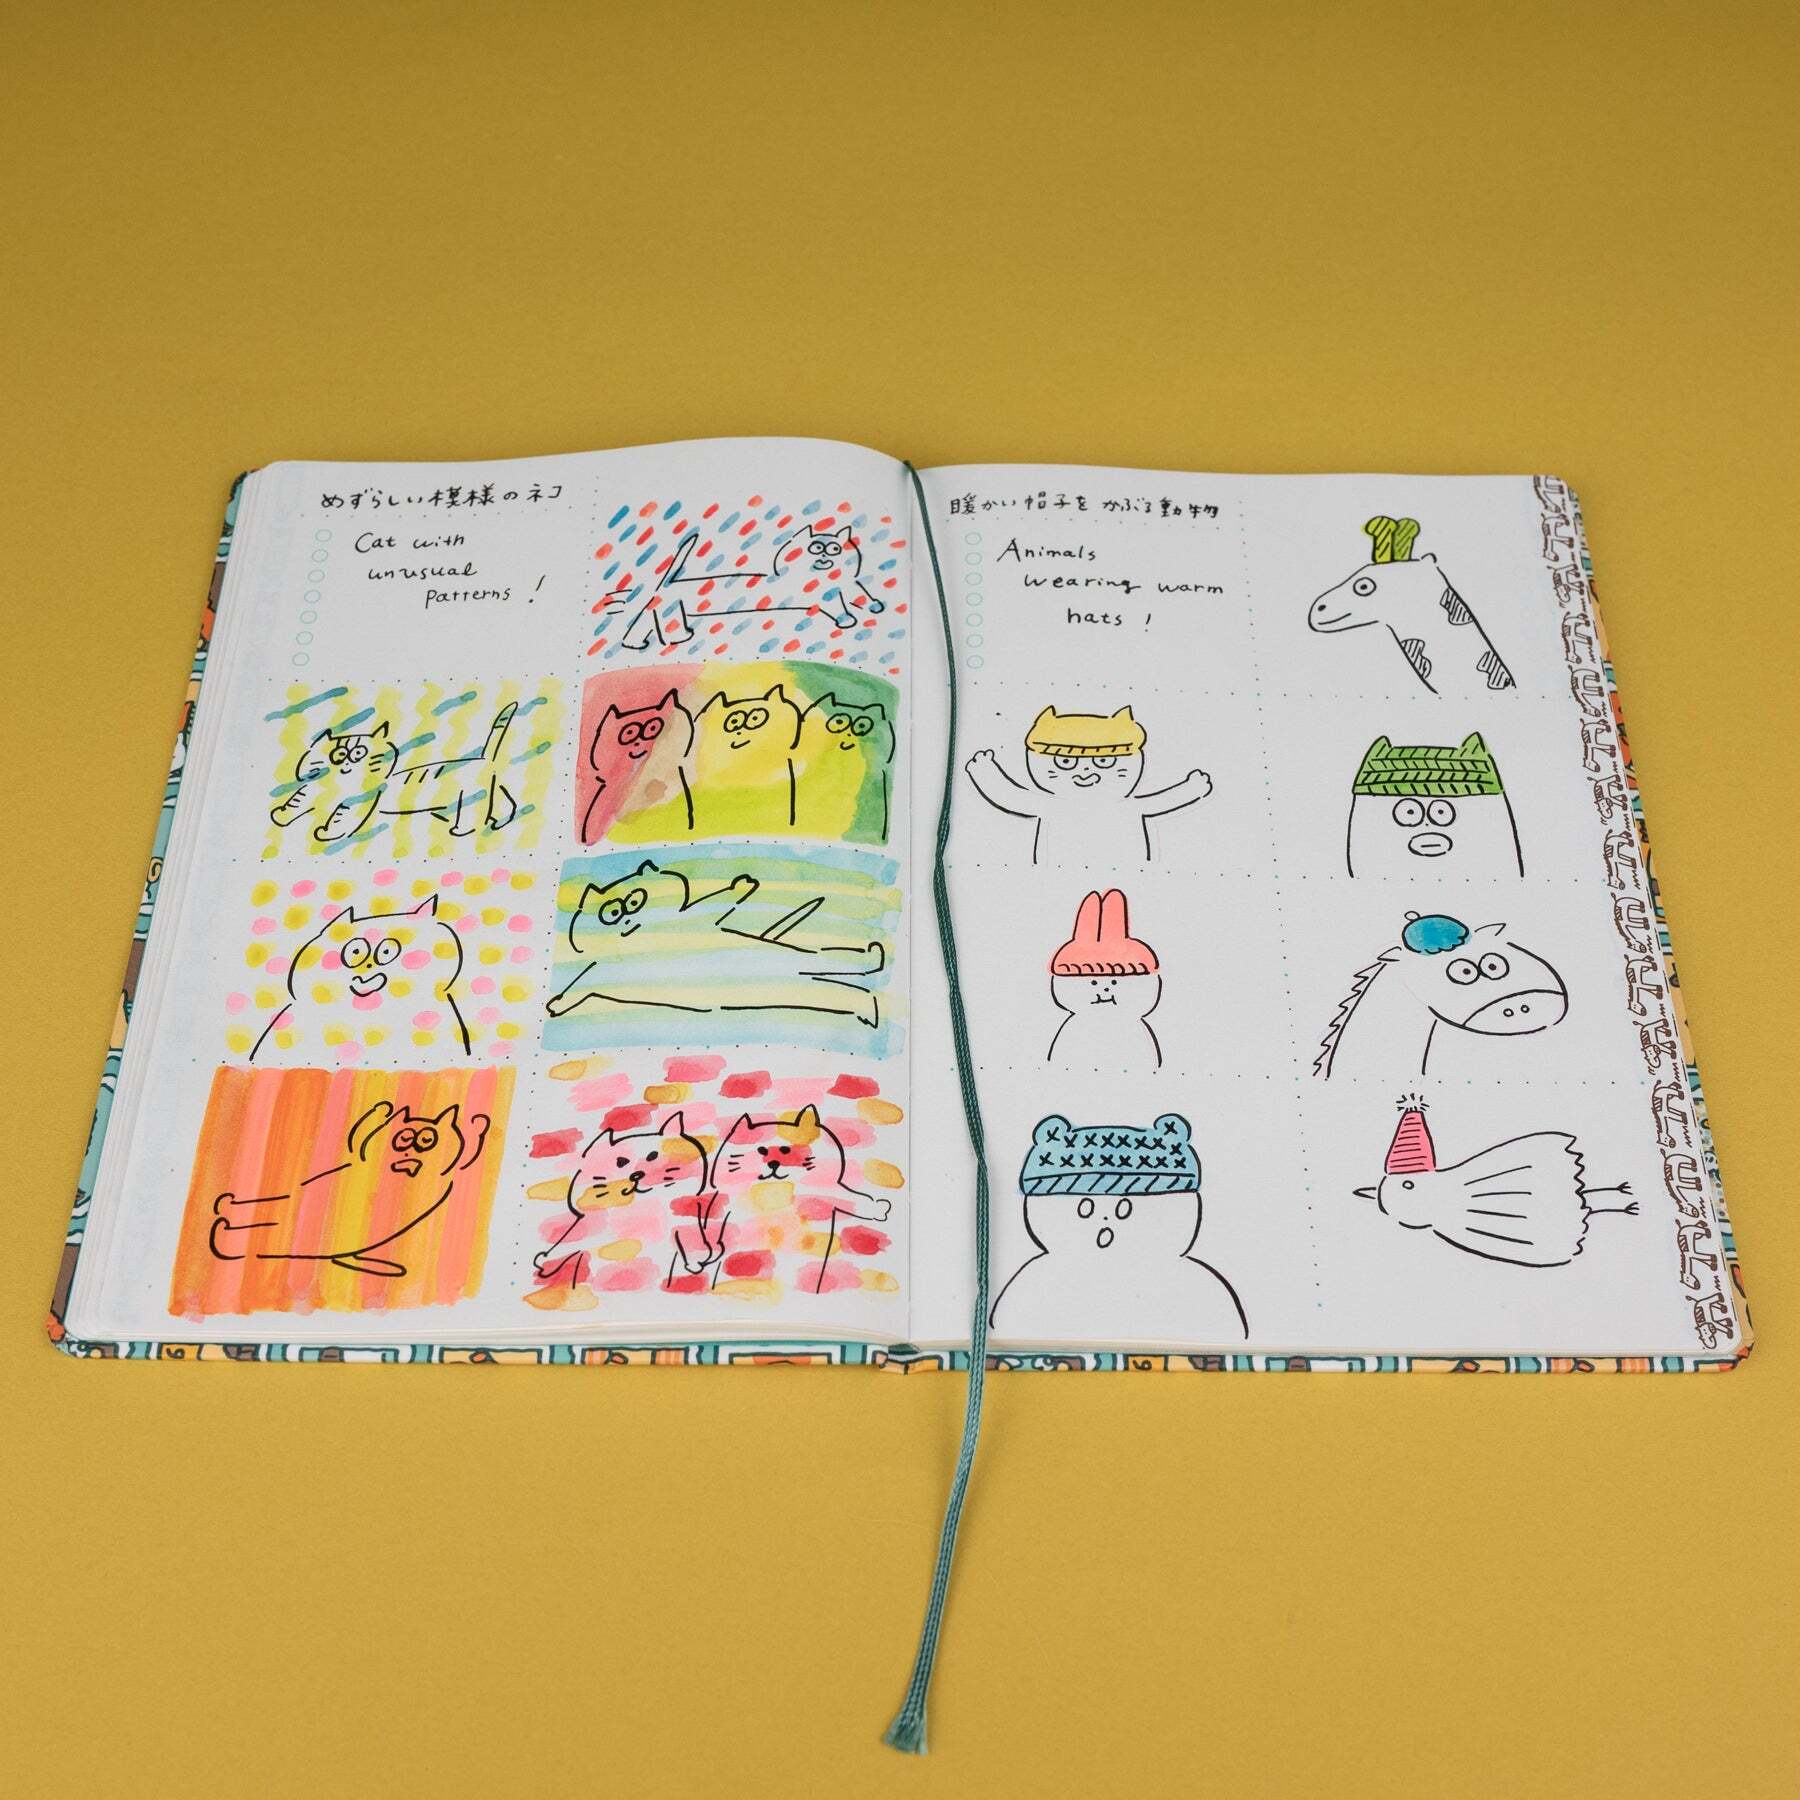 めずらしい模様のネコ
Cat with
unusual
patterns!
暖かい帽子をかぶる動物
Animals
wearing warm
hats!